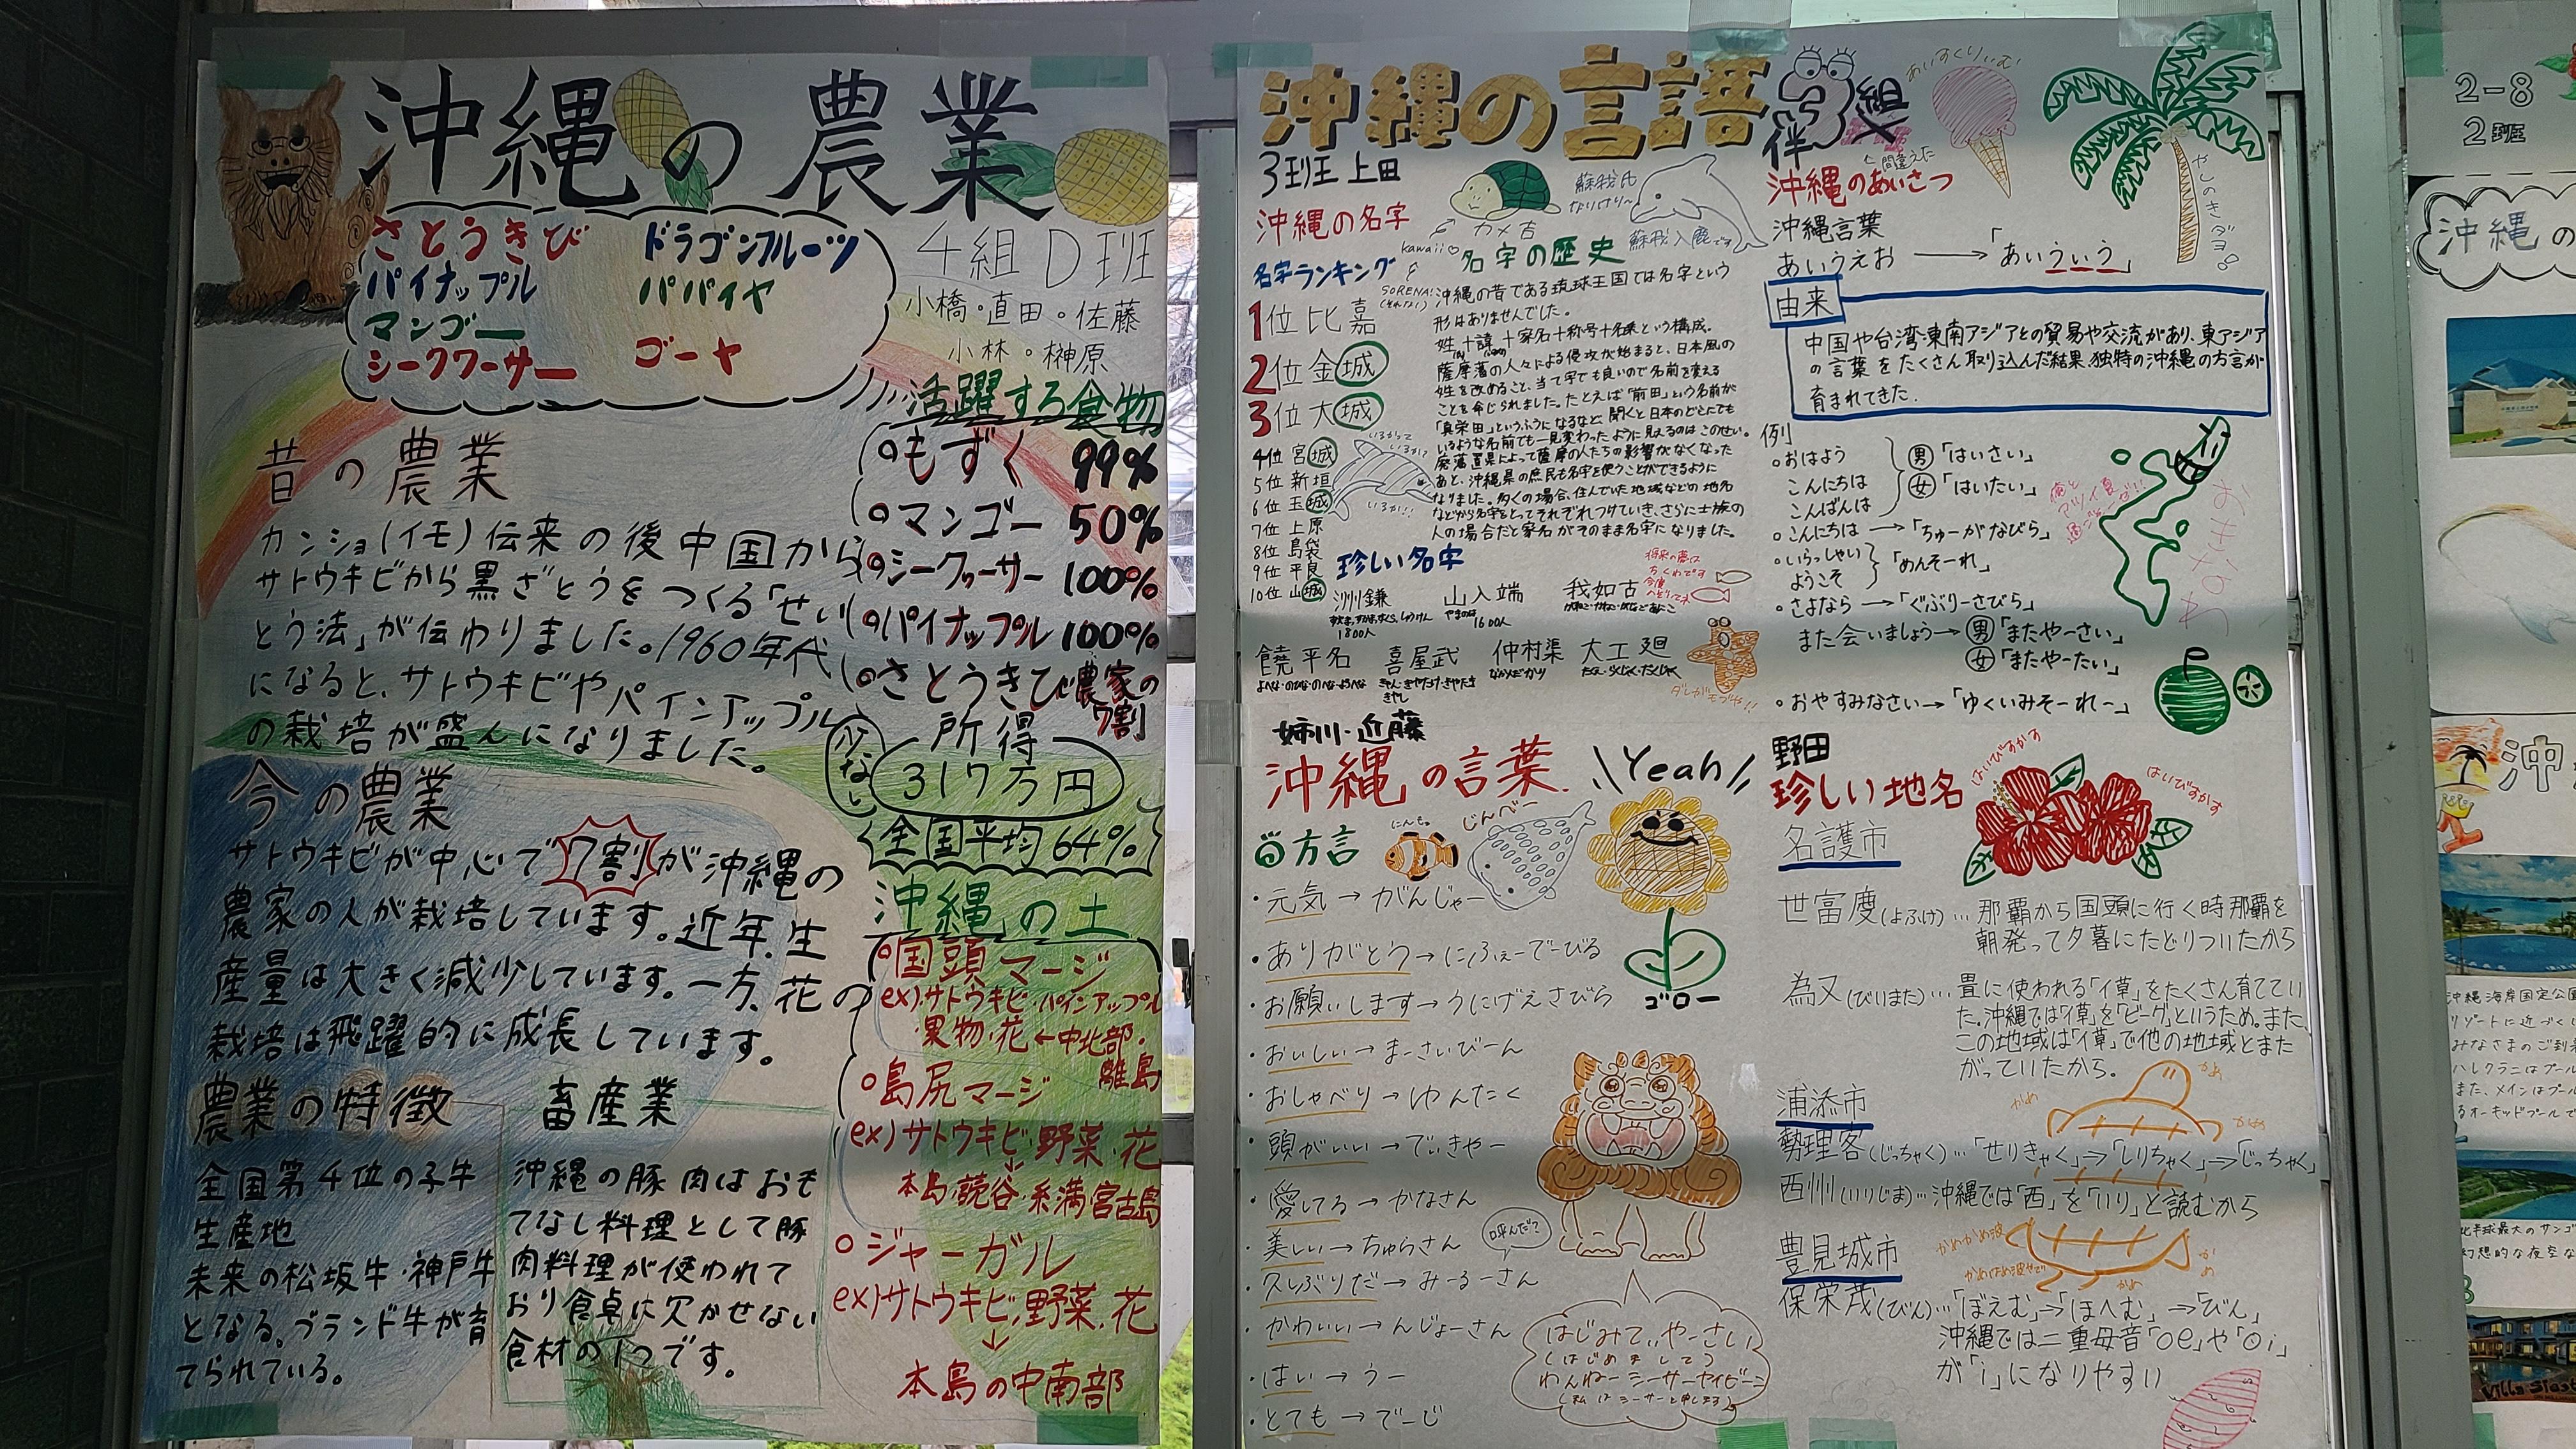 沖縄の農業
さとうきび
ドラゴンフルーツ
パイナップル
パパイヤ
マンゴー
シークワーサー
ゴーヤ
4組D班
小橋・直田・佐藤
小林・榊原
昔の農業
カンショ(イモ)伝来の後中国から
サトウキビから黒ざとうをつくる「せい
とう法」が伝わりました。1960年代
になると、サトウキビやパインアップル
の栽培が盛んになりました。
今の農業
サトウキビが中心で7割が沖縄の
農家の人が栽培しています。近年、生
産量は大きく減少しています。一方、花の
栽培は飛躍的に成長しています。
農業の特徴
全国第4位の子牛
生産地
未来の松坂牛・神戸牛
となる。ブランド牛が育
てられている。
畜産業
沖縄の豚肉はおも
てなし料理として豚
肉料理が使われて
おり食卓に欠かせない
食材の1つです。
活躍する食物
もずく 99%
マンゴー 50%
シークヮーサー 100%
パイナップル 100%
さとうきび農家の
7割
所得
少ない
317万円
全国平均64%
沖縄の土
国頭マージ
ex)サトウキビ・パインアップル
・果物・花←中北部・
離島
島尻マージ
ex)サトウキビ・野菜・花
本島・読谷・糸満宮古島
ジャーガル
ex)サトウキビ、野菜、花
本島の中南部
沖縄の言語
3組
3班 上田
伴
間違えた
あいすくりいむ
やしのきダヨ
沖縄の名字
カメ吉
kawaii
蘇我氏
なりけり〜
蘇我入鹿です
名字ランキング
SORENA!
(それな!)
1位 比嘉
2位 金城
3位 大城
4位 宮城
5位 新垣
6位 玉城
7位 上原
8位 島袋
9位 平良
10位 山城
いるかって
いるか!?
いるか!!
名字の歴史
沖縄の昔である琉球王国では名字という
形はありませんでした。
姓+諱+家名+称号+名乗という構成。
薩摩藩の人々による侵攻が始まると、日本風の
姓を改めること、当て字でも良いので名前を変える
ことを命じられました。たとえば「前田」という名前が
「真栄田」というふうになるなど、聞くと日本のどこにでも
いるような名前でも一見変わったように見えるのはこのせい。
廃藩置県によって薩摩の人たちの影響がなくなった
あと、沖縄県の庶民も名字を使うことができるように
なりました。多くの場合、住んでいた地域などの地名
などから名字をとってそれぞれつけていき、さらに士族の
人の場合だと家名がそのまま名字になりました。
珍しい名字
洲鎌
1800人
山入端
やまのは
1600人
我如古
饒平名
喜屋武
仲村渠
なかんだかり
大工廻
沖縄のあいさつ
沖縄言葉
あいうえお → 「あいういう」
由来
中国や台湾・東南アジアとの貿易や交流があり、東アジア
の言葉をたくさん取り込んだ結果、独特の沖縄の方言が
育まれてきた.
例
おはよう
こんにちは
こんばんは
男「はいさい」
女「はいたい」
こんにちは → 「ちゅーがなびら」
いらっしゃい
ようこそ
「めんそーれ」
さよなら → 「ぐぶりーさびら」
また会いましょう → 男「またやーさい」
女「またやーたい」
おやすみなさい → 「ゆくいみそーれー」
おきなわ
姉川・近藤
沖縄の言葉
Yeah
方言
にんもぉ
じんべー
ゴロー
元気→がんじゅー
ありがとう→にふぇーでーびる
お願いします→うにげえさびら
おいしい→まーさいびーん
おしゃべり→ゆんたく
頭がいい→でぃきやー
愛してる→かなさん
美しい→ちゅらさん
久しぶりだ→みーるーさん
かわいい→んじょーさん
はい→うー
とても→でーじ
呼んだ?
はじみてぃやーさい
(はじめまして)
わんねーシーサーヤイビーン
(私はシーサーと申します)
野田
珍しい地名
はいびすかす
はいびすかす
名護市
世冨慶(よふけ)…那覇から国頭に行く時那覇を
朝発って夕暮にたどりついたから
為又(びいまた)…畳に使われる「イ草」をたくさん育ててい
た。沖縄では「イ草」を「ビーグ」というため。また、
この地域は「イ草」で他の地域とまた
がっていたから。
かめ
かめ
かめ
浦添市
勢理客(じっちゃく)…「せりきゃく」→「しりちゃく」→「じっちゃく」
西州(いりじま)…沖縄では「西」を「いり」と読むから
かめかめ波
かめ
かめ
豊見城市
保栄茂(びん)…「ぼえむ」→「ほへむ」→「びん」
沖縄では二重母音「oe」や「oi」
が「i」になりやすい
2-8
2班
沖縄の
沖
沖縄海岸国定公園
リゾートに近づく
みなさまのご到
ハレクラニはプール
また、メインはプール
るオーキッドプールで
北半球最大のサンゴ
幻想的な夜空な